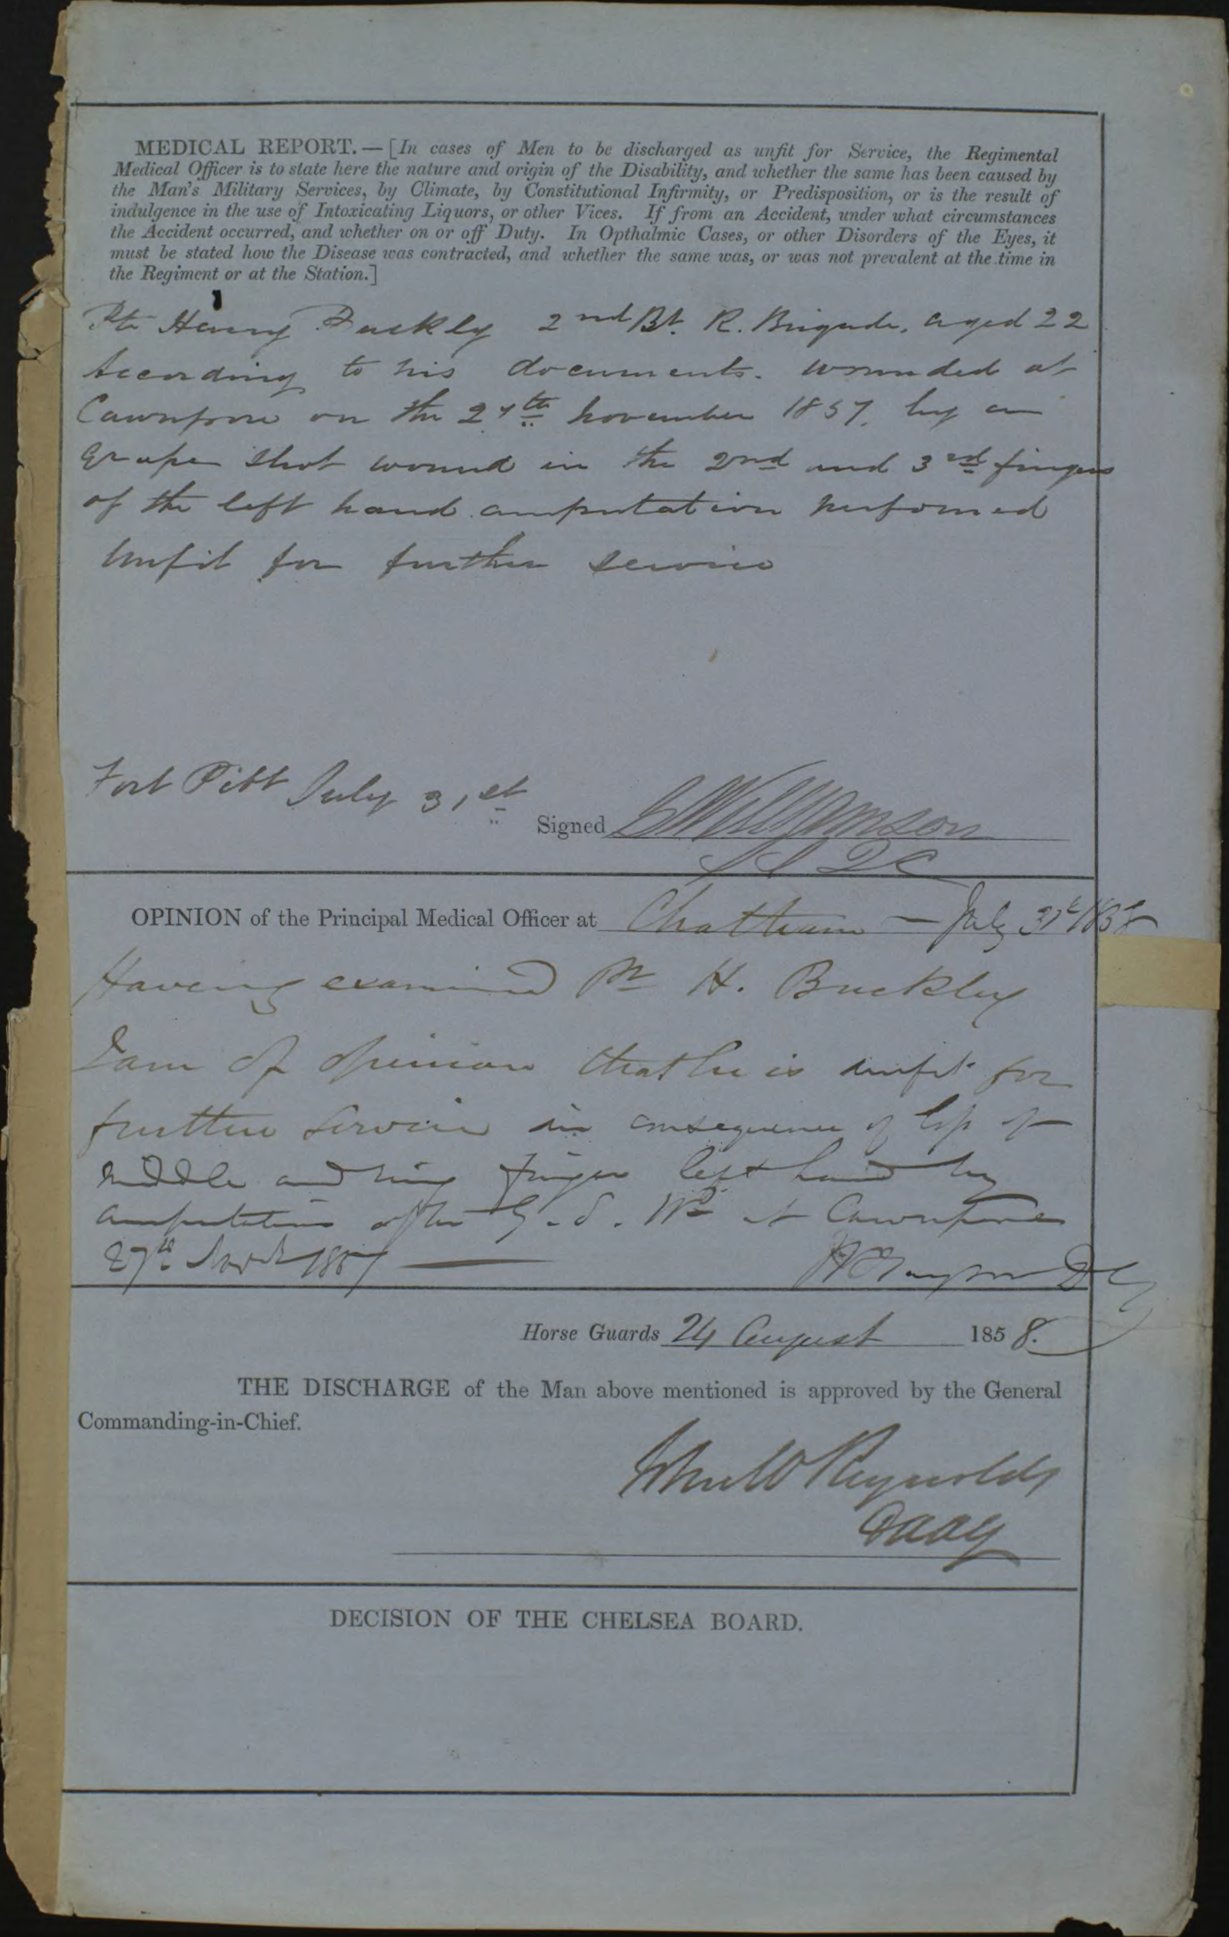 MEDICAL REPORT. — [In cases of Men to be discharged as unfit for Service, the Regimental
Medical Officer is to state here the nature and origin of the Disability, and whether the same has been caused by
the Man's Military Services, by Climate, by Constitutional Infirmity, or Predisposition, or is the result of
indulgence in the use of Intoxicating Liquors, or other Vices. If from an Accident, under what circumstances
the Accident occurred, and whether on or off Duty. In Opthalmic Cases, or other Disorders of the Eyes, it
must be stated how the Disease was contracted, and whether the same was, or was not prevalent at the time in
the Regiment or at the Station.]
Pte Henry Buckley 2nd Bt. R. Brigade. aged 22
According to his documents. wounded at
Cawnpore on the 27th November 1857. by an
grape shot wound in the 2nd and 3rd fingers
of the left hand amputation performed
Unfit for further service
Fort Pitt July 31st
Signed Williamson
OPINION of the Principal Medical Officer at Chatham — July 31st 1858
Having examined Pte H. Buckley
I am of opinion that he is unfit for
further service in consequence of loss of
middle and ring finger left hand by
amputation after G. S. Wd at Cawnpore
27th Novr 1857
Horse Guards 24 August 1858.
THE DISCHARGE of the Man above mentioned is approved by the General
Commanding-in-Chief.
John W Reynolds
DAAG
DECISION OF THE CHELSEA BOARD.